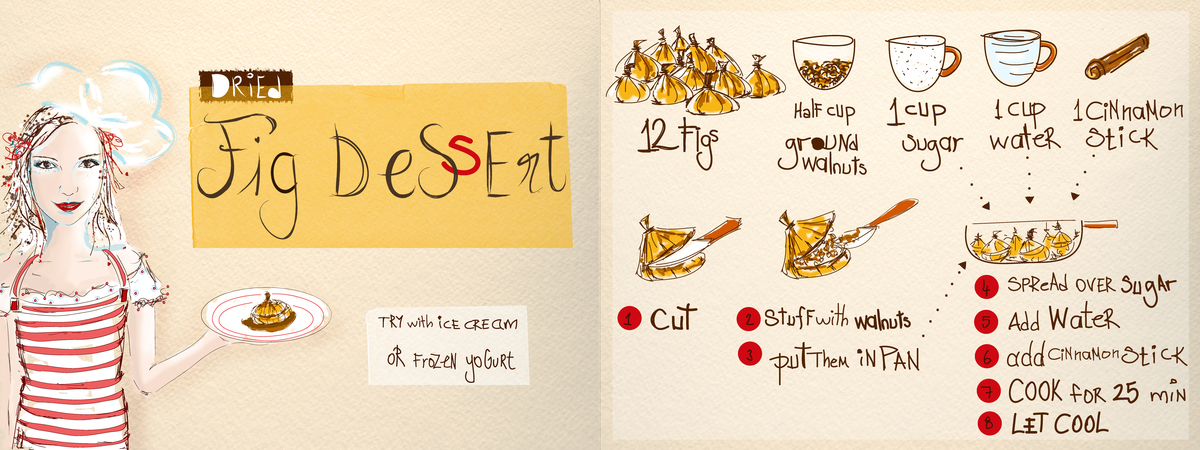 DRiEd
Fig DeSSErt
TRY with iCE CREAM
OR FROZEN yoGURT
12 Figs
Half cup
ground
walnuts
1 cup
sugar
1 cup
water
1 CiNNaMoN
Stick
1 Cut
2 Stuff with walnuts
3 put Them iN PAN
4 SPREAd OVER SugAr
5 Add WateR
6 add CiNNaMon Stick
7 COOK FOR 25 miN
8 LET COOL